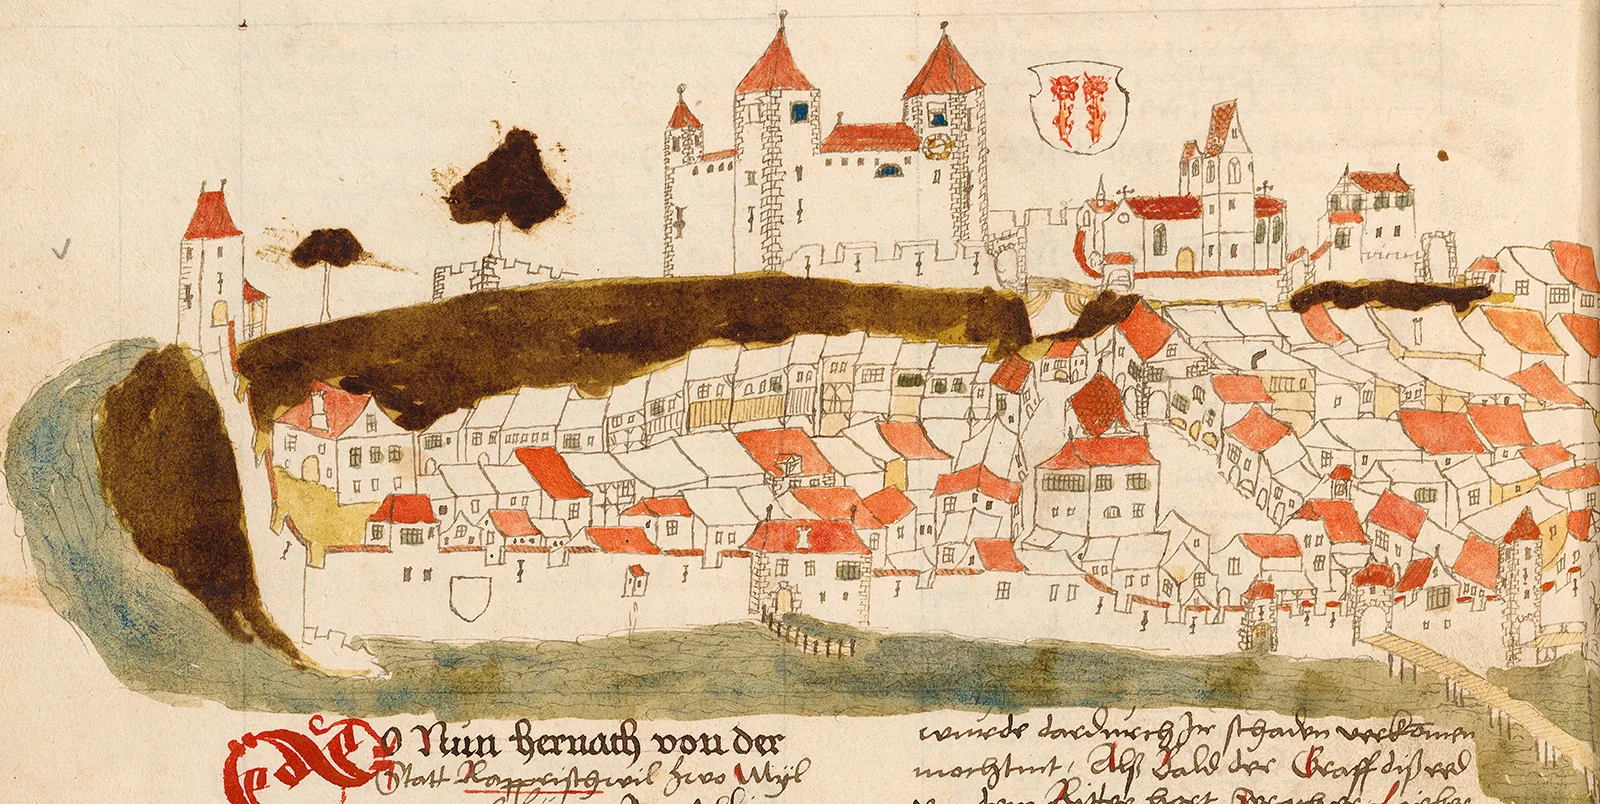 So Nun hernach von der
Statt Rapperischwil zwo Mÿl
wurde dardurch Jr schaden verkomen
mochtint, Alss bald der Graff diss red